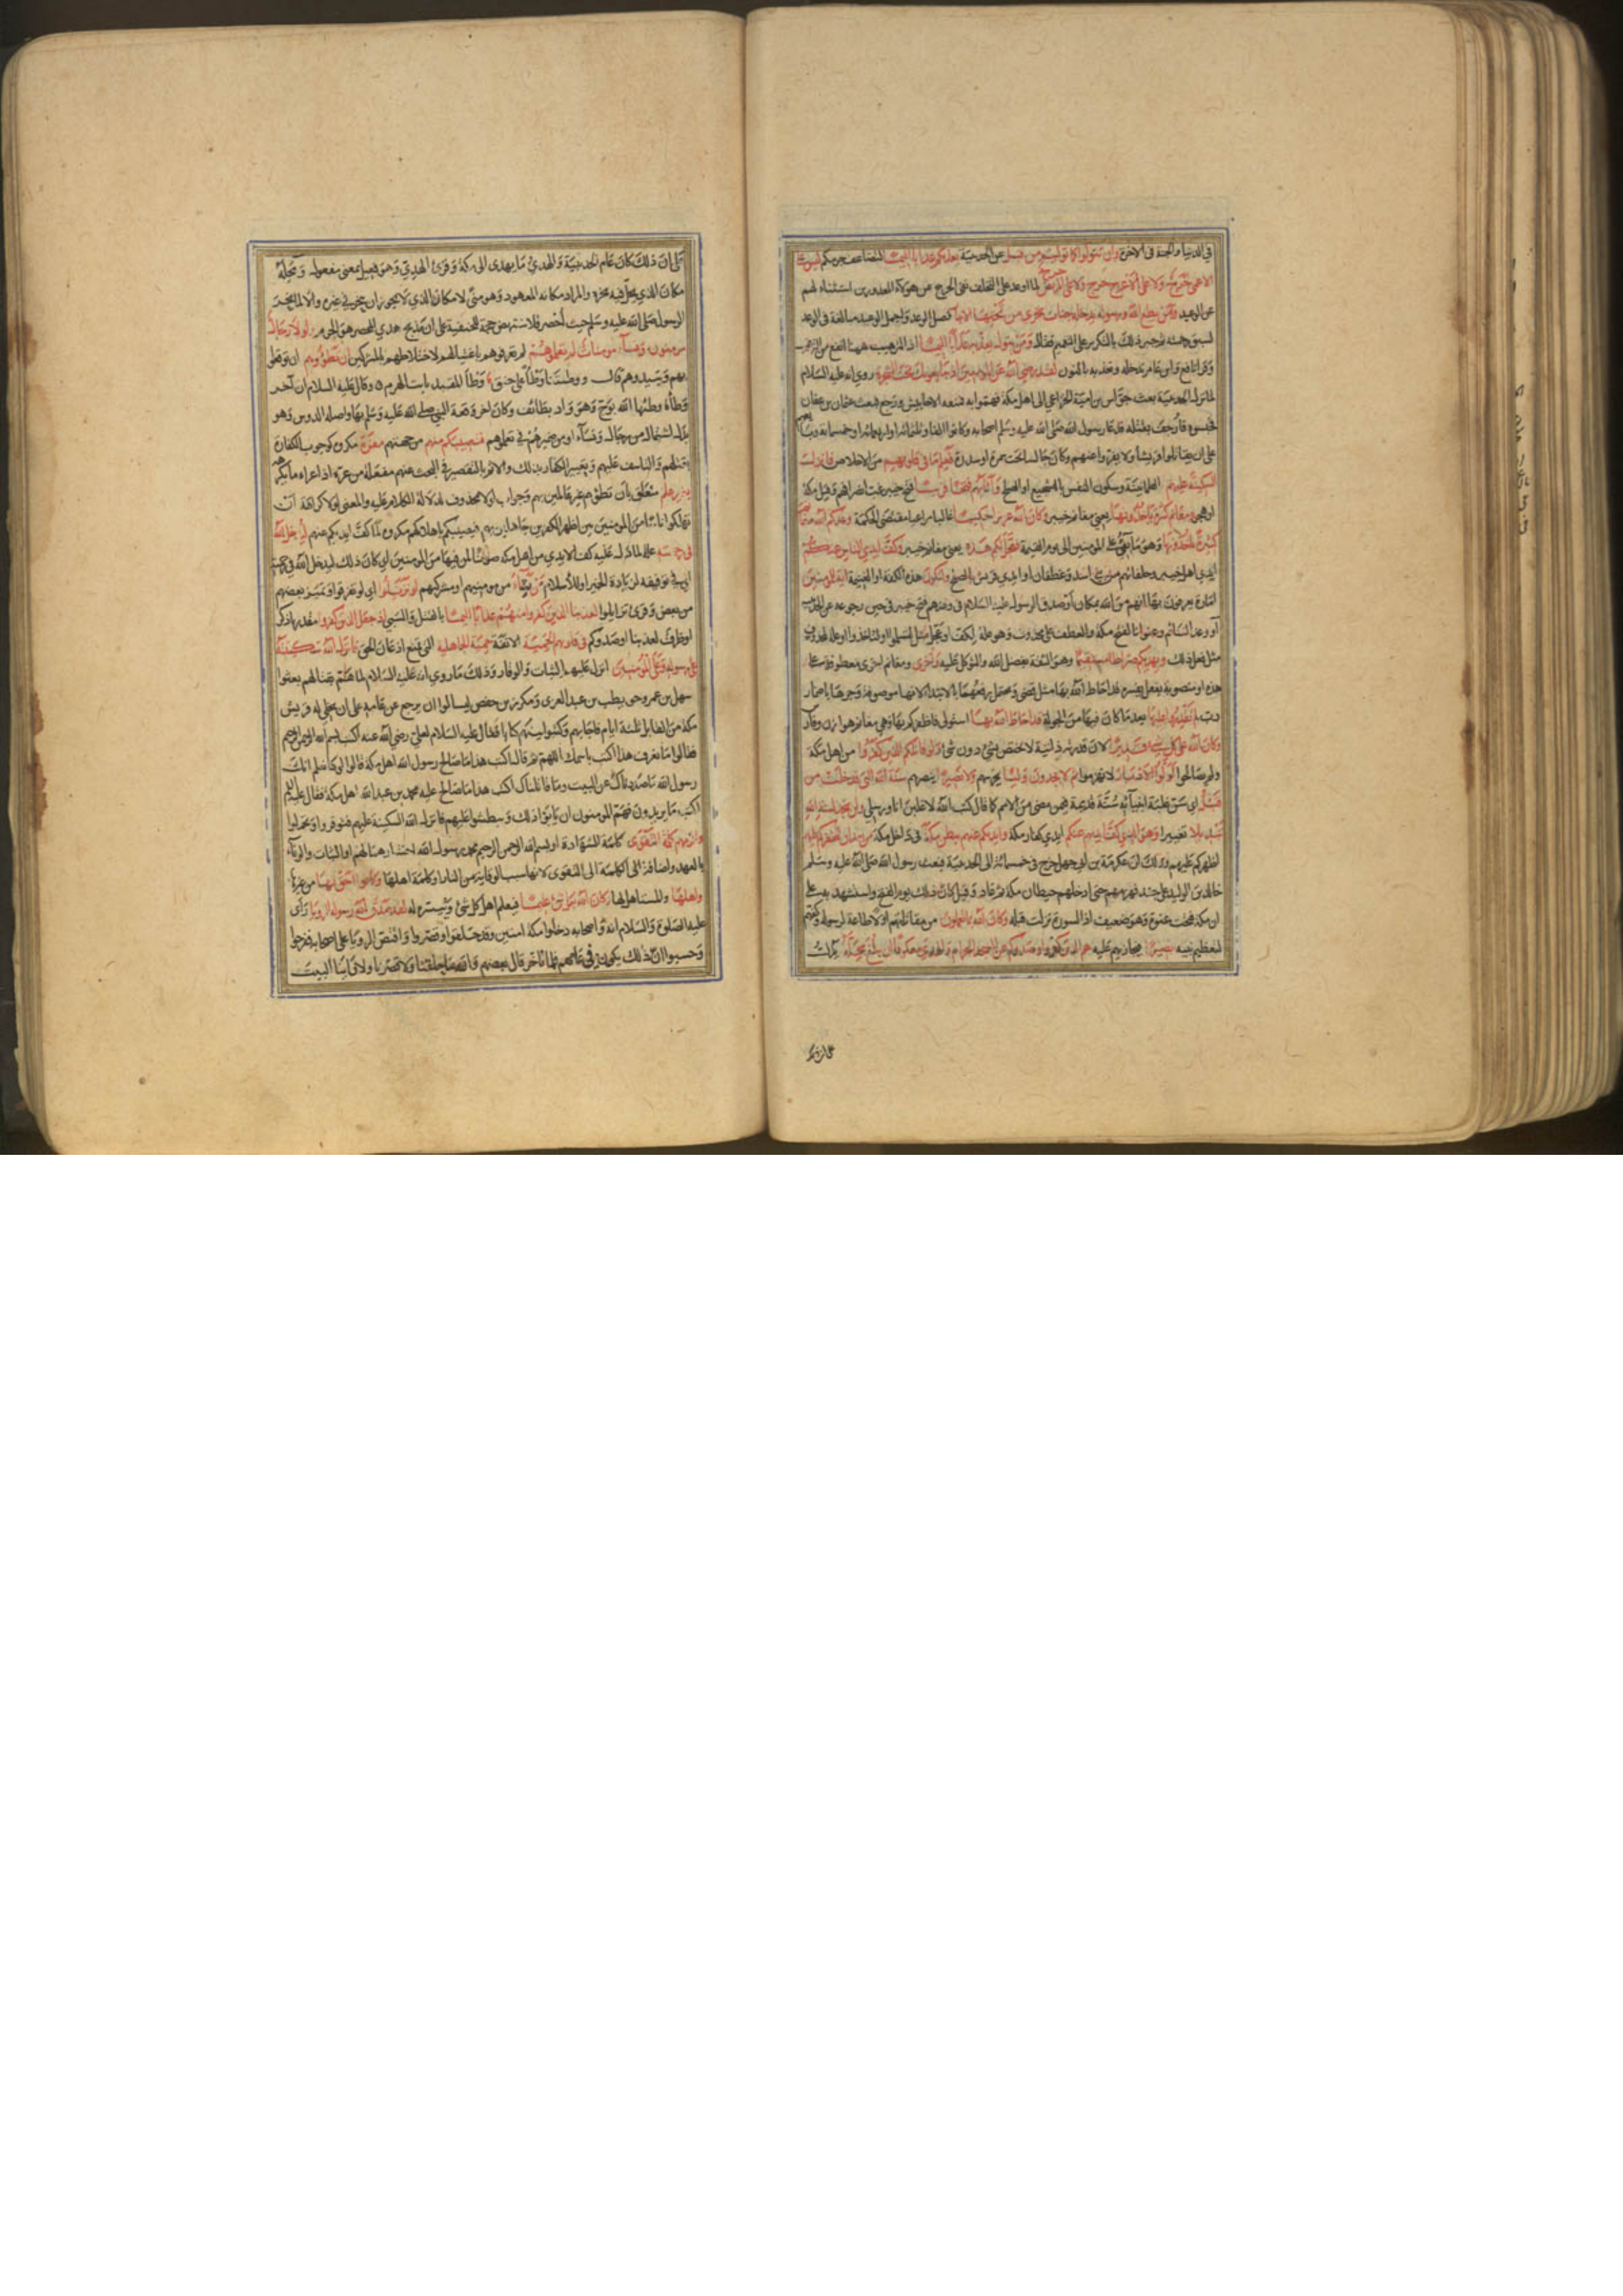 في الدنيا والجنة في الآخرة وان تتولوا كما توليتم من قبل عن الحديبية يعذبكم عذابا اليما لتضاعف جرمكم ليس على
الاعمى حرج ولا على الاعرج حرج ولا على المريض حرج لما اوعد على التخلف نفى الحرج عن هؤلاء المعذورين استثناء لهم
عن الوعيد ومن يطع الله ورسوله يدخله جنات تجري من تحتها الانهار فصل الوعد واجمل الوعيد مبالغة في الوعد
لسبق رحمته ثم جبر ذلك بالتكرير على التعميم فقال ومن يتول يعذبه عذابا اليما اذ الترهيب ههنا انفع من الترغيب
وقرأ نافع وابن عامر ندخله ونعذبه بالنون لقد رضي الله عن المؤمنين اذ يبايعونك تحت الشجرة روي انه عليه السلام
لما نزل الحديبية بعث جواس بن امية الخزاعي الى اهل مكة فهموا به فمنعه الاحابيش فرجع فبعث عثمان بن عفان
فحبسوه فأرجف بقتله فدعا رسول الله صلى الله عليه وسلم اصحابه وكانوا الفا وثلثمائة او اربعمائة او خمسمائة وبايعهم
على ان يقاتلوا قريشا ولا يفروا عنهم وكان جالسا تحت سمرة او سدرة فعلم ما في قلوبهم من الاخلاص فانزل
السكينة عليهم الطمانينة وسكون النفس بالتشجيع او الصلح واثابهم فتحا قريبا فتح خيبر غب انصرافهم وقيل مكة
او هجر ومغانم كثيرة يأخذونها يعني مغانم خيبر وكان الله عزيزا حكيما غالبا مراعيا مقتضى الحكمة وعدكم الله مغانم
كثيرة تأخذونها وهي ما يفيء على المؤمنين الى يوم القيمة فعجل لكم هذه يعني مغانم خيبر وكف ايدي الناس عنكم
ايدي اهل خيبر وحلفائهم من بني اسد وغطفان او ايدي قريش بالصلح ولتكون هذه الكفة او الغنيمة اية للمؤمنين
امارة يعرفون بها انهم من الله بمكان او صدق الرسول عليه السلام في وعدهم فتح خيبر في حين رجوعه عن الحديبية
او وعد المغانم وعنوانا لفتح مكة والعطف على محذوف وهو علة لكف او عجل مثل لتسلموا او لتاخذوا او علة لمحذوف
مثل فعل ذلك ويهديكم صراطا مستقيما وهو الثقة بفضل الله والتوكل عليه واخرى ومغانم اخرى معطوفة على
هذه او منصوبة بفعل يفسره قد احاط الله بها مثل قضى ويحتمل رفعها بالابتداء لانها موصوفة وجرها باضمار
رب لم تقدروا عليها بعد لما كان فيها من الجولة قد احاط الله بها استولى فاظفركم بها وهي مغانم هوازن وفارس
وكان الله على كل شيء قديرا لان قدرته ذاتية لا تختص بشيء دون شيء ولو قاتلكم الذين كفروا من اهل مكة
ولم يصالحوا لولوا الادبار لانهزموا ثم لا يجدون وليا يحرسهم ولا نصيرا ينصرهم سنة الله التي قد خلت من
قبل اي سن غلبة انبيائه سنة قديمة فيمن مضى من الامم كما قال كتب الله لاغلبن انا ورسلي ولن تجد لسنة الله
تبديلا تغييرا وهو الذي كف ايديهم عنكم ايدي كفار مكة وايديكم عنهم ببطن مكة في داخل مكة من بعد ان اظفركم عليهم
اظهركم عليهم وذلك ان عكرمة بن ابي جهل خرج في خمسمائة الى الحديبية فبعث رسول الله صلى الله عليه وسلم
خالد بن الوليد على جند فهزمهم حتى ادخلهم حيطان مكة ثم عاد وقيل كان ذلك يوم الفتح واستشهد به على
ان مكة فتحت عنوة وهو ضعيف اذ السورة نزلت قبله وكان الله بما تعملون من مقاتلتهم اولا طاعة لرسوله وكفهم
لتعظيم بيته بصيرا فيجازيهم عليه هم الذين كفروا وصدوكم عن المسجد الحرام والهدي معكوفا ان يبلغ محله يدل
على ان ذلك كان عام الحديبية والهدي ما يهدى الى مكة وقرئ الهدي وهو فعيل بمعنى مفعول ومحله
مكان الذي يحل فيه نحره والمراد مكانه المعهود وهو منى لا مكانه الذي لا يجوز ان ينحر في غيره والا لما نحره
الرسول صلى الله عليه وسلم حيث أحصر فلا ينتهض حجة للحنفية على ان مذبح هدي المحصر هو الحرم ولولا رجال
مؤمنون ونساء مؤمنات لم تعلموهم لم تعرفوهم باعيانهم لاختلاطهم بالمشركين ان تطؤوهم ان توقعوا
بهم وتبيدوهم قال ووطئتنا وطأ على حنق وطأ المقيد نابت الهرم وقال عليه السلام ان آخر
وطأة وطئها الله بوج وهو واد بطائف وكان آخر وقعة النبي صلى الله عليه وسلم بها واصله الدوس وهو
بدل اشتمال من رجال ونساء او من ضميرهم في تعلموهم فتصيبكم منهم من جهتهم معرة مكروه كوجوب الكفارة
بقتلهم والتاسف عليهم وتعيير الكفار بذلك والاثم بالتقصير في البحث عنهم مفعلة من عره اذا عراه ما يكرهه
بغير علم متعلق بأن تطؤهم غير عالمين بهم وجواب لولا محذوف لدلالة الكلام عليه والمعنى لولا كراهة ان
تهلكوا اناسا مؤمنين بين اظهر الكافرين جاهلين بهم فيصيبكم باهلاكهم مكروه لما كف ايديكم عنهم ليدخل الله
في رحمته علة لما دل عليه كف الايدي من اهل مكة صونا لمن فيها من المؤمنين اي كان ذلك ليدخل الله في رحمته
اي في توفيقه لزيادة الخير او للاسلام من يشاء من مؤمنيهم او مشركيهم لو تزيلوا اي لو تفرقوا وتميز بعضهم
من بعض وقرئ تزايلوا لعذبنا الذين كفروا منهم عذابا اليما بالقتل والسبي اذ جعل الذين كفروا مقدر باذكر
او ظرف لعذبنا او صدوكم في قلوبهم الحمية الانفة حمية الجاهلية التي تمنع اذعان الحق فانزل الله سكينته
على رسوله وعلى المؤمنين انزل عليهم الثبات والوقار وذلك ما روي انه عليه السلام لما هم بقتالهم بعثوا
سهل بن عمرو حويطب بن عبد العزى ومكرز بن حفص ليسألوا ان يرجع من عامه على ان يخلي له قريش
مكة من القابل ثلثة ايام فاجابهم وكتبوا بينهم كتابا فقال عليه السلام لعلي رضي الله عنه اكتب بسم الله الرحمن الرحيم
فقالوا ما نعرف هذا اكتب باسمك اللهم ثم قال اكتب هذا ما صالح رسول الله اهل مكة فقالوا لو كنا نعلم انك
رسول الله ما صددناك عن البيت وما قاتلناك اكتب هذا ما صالح عليه محمد بن عبد الله اهل مكة فقال عليه السلام
اكتب ما يريدون فهم المؤمنون ان يأبوا ذلك ويبطشوا عليهم فانزل الله السكينة عليهم فتوقروا وتحملوا
والزمهم كلمة التقوى كلمة الشهادة او بسم الله الرحمن الرحيم محمد رسول الله اختارها لهم او الثبات والوفاء
بالعهد واضافة الكلمة الى التقوى لانها سبب الوقاية من النار او كلمة اهلها وكانوا احق بها من غيرها
واهلها والمستاهل لها وكان الله بكل شيء عليما فيعلم اهل كل شيء وييسره له لقد صدق الله رسوله الرؤيا رأى
عليه الصلوة والسلام انه واصحابه دخلوا مكة آمنين وقد حلقوا وقصروا واقتص الرؤيا على اصحابه ففرحوا
وحسبوا ان ذلك يكون في عامهم فلما تأخر قال بعضهم والله ما حلقنا ولا قصرنا ولا رأينا البيت